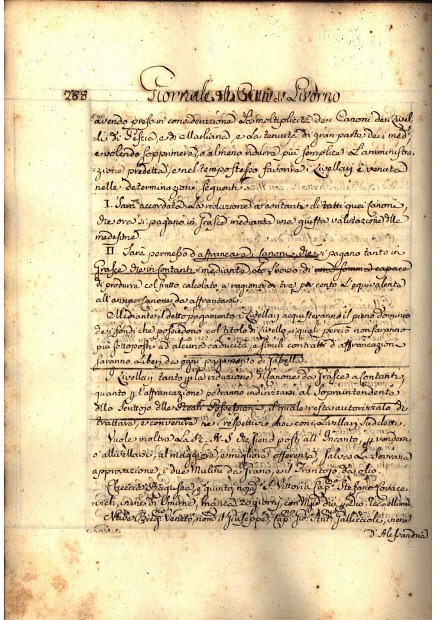 288
Giornale Livorno
avendo preso in considerazione la moltiplicità dei Canoni dei Livel-
li di Pescia, e di Marliana e la tenuità di gran parte dei med.
e volendo sopprimere, o almeno ridurre più semplice l'amministra-
zione predetta, e nel tempo stesso favorire i Livellarj è venuta
nelle determinazioni seguenti
I. Sarà accordata la riduzione a contanti di tutti quei Canoni,
che ora si pagano in Grasce mediante una giusta valutazione delle
medesime
II. Sarà permesso d'affrancare i Canoni, che si pagano tanto in
Grasce che in contanti mediante lo sborso di una somma capace
di produrre col frutto calcolato a ragione di tre per cento l'equivalente
all'annuo Canone da affrancarsi.
Mediante il detto pagamento i Livellarj acquisteranno il pieno dominio
dei fondi che possiedono col titolo di Livello, i quali perciò non saranno
più sottoposti ad alcuna caducità, e simili contratti d'affrancazioni
saranno liberi da ogni pagamento di Gabella.
I Livellarj tanto per la riduzione di Canone da Grasce a contanti,
quanto per l'affrancazione potranno indirizzarsi al Soprintendente
dello Scrittojo delle Reali Possessioni, il quale resta autorizzato di
trattare, e convenire nei respettivi casi con i Livellarj suddetti.
Vuole inoltre la R. A. S. che siano posti all'Incanto, per vendersi
o allivellarsi, al maggiore, e migliore offerente, salva la Sovrana
approvazione, i due Mulini da Grano, e il Frantojo da olio.
Checcia Ragusea, è giunto, nom. la Vittoria Cap. Stefano
viene di Smirne, manca 20 giorni, con
Nave Veneto, nom. il Giuseppe, Cap. Gio. Ant. Galluccioli, viene
d'Alessandria